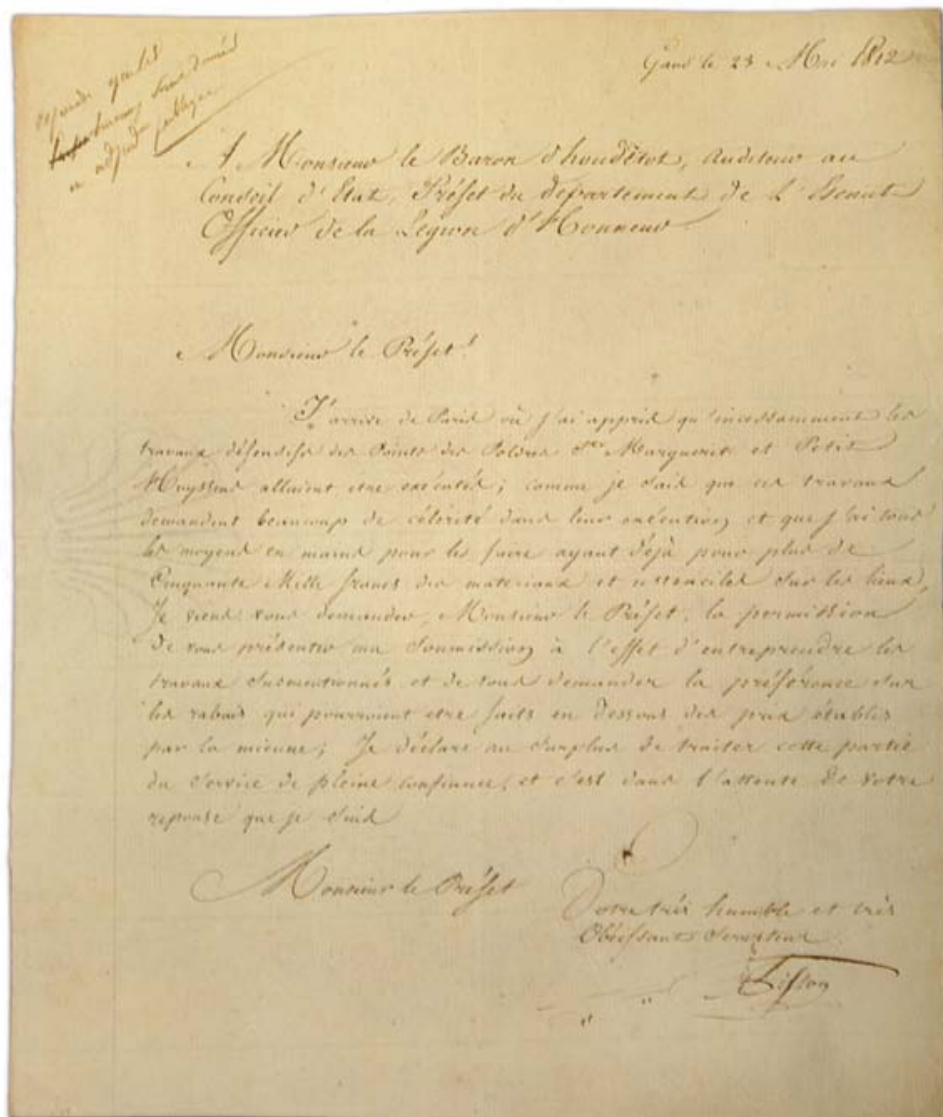 reponde que les
travaux seront donnés
en adjudon publique
Gand le 23 Mai 1812
A Monsieur le Baron d'houdetot, Auditeur au
Conseil d'Etat, Préfet du département de l'Escaut
Officier de la Légion d'Honneur
Monsieur le Préfet!
J'arrive de Paris où j'ai appris qu'incessamment les
travaux défensifs des Points des Poldres Ste Marguerite et Petit
Huyssens alloient etre exécutés; comme je sais que ces travaux
demandent beaucoup de célérité dans leur exécution, et que j'ai tous
les moyens en mains pour les faire ayant déjà pour plus de
Cinquante Mille francs des materiaux et ustenciles sur les lieux,
Je viens vous demander, Monsieur le Préfet, la permission
de vous présenter ma soumission, à l'effet d'entreprendre les
travaux susmentionnés et de vous demander la préférence sur
les rabais qui pourroient etre faits en dessous des prix établis
par la mienne; Je déclare au surplus de traiter cette partie
du service de pleine confiance, et c'est dans l'attente de votre
reponse que je suis
Monsieur le Préfet
Votre très humble et très
Obéissant Serviteur
Tisson